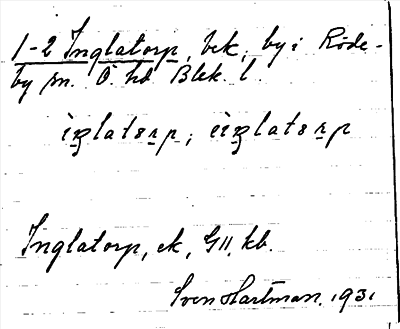 1-2 Inglatorp, bek, by i Röde-
by sn. Ö. hd Blek. l.
iŋlatorp, eiŋlatorp
Inglatorp, ek, GII, kb.
Sven Hartman. 1931